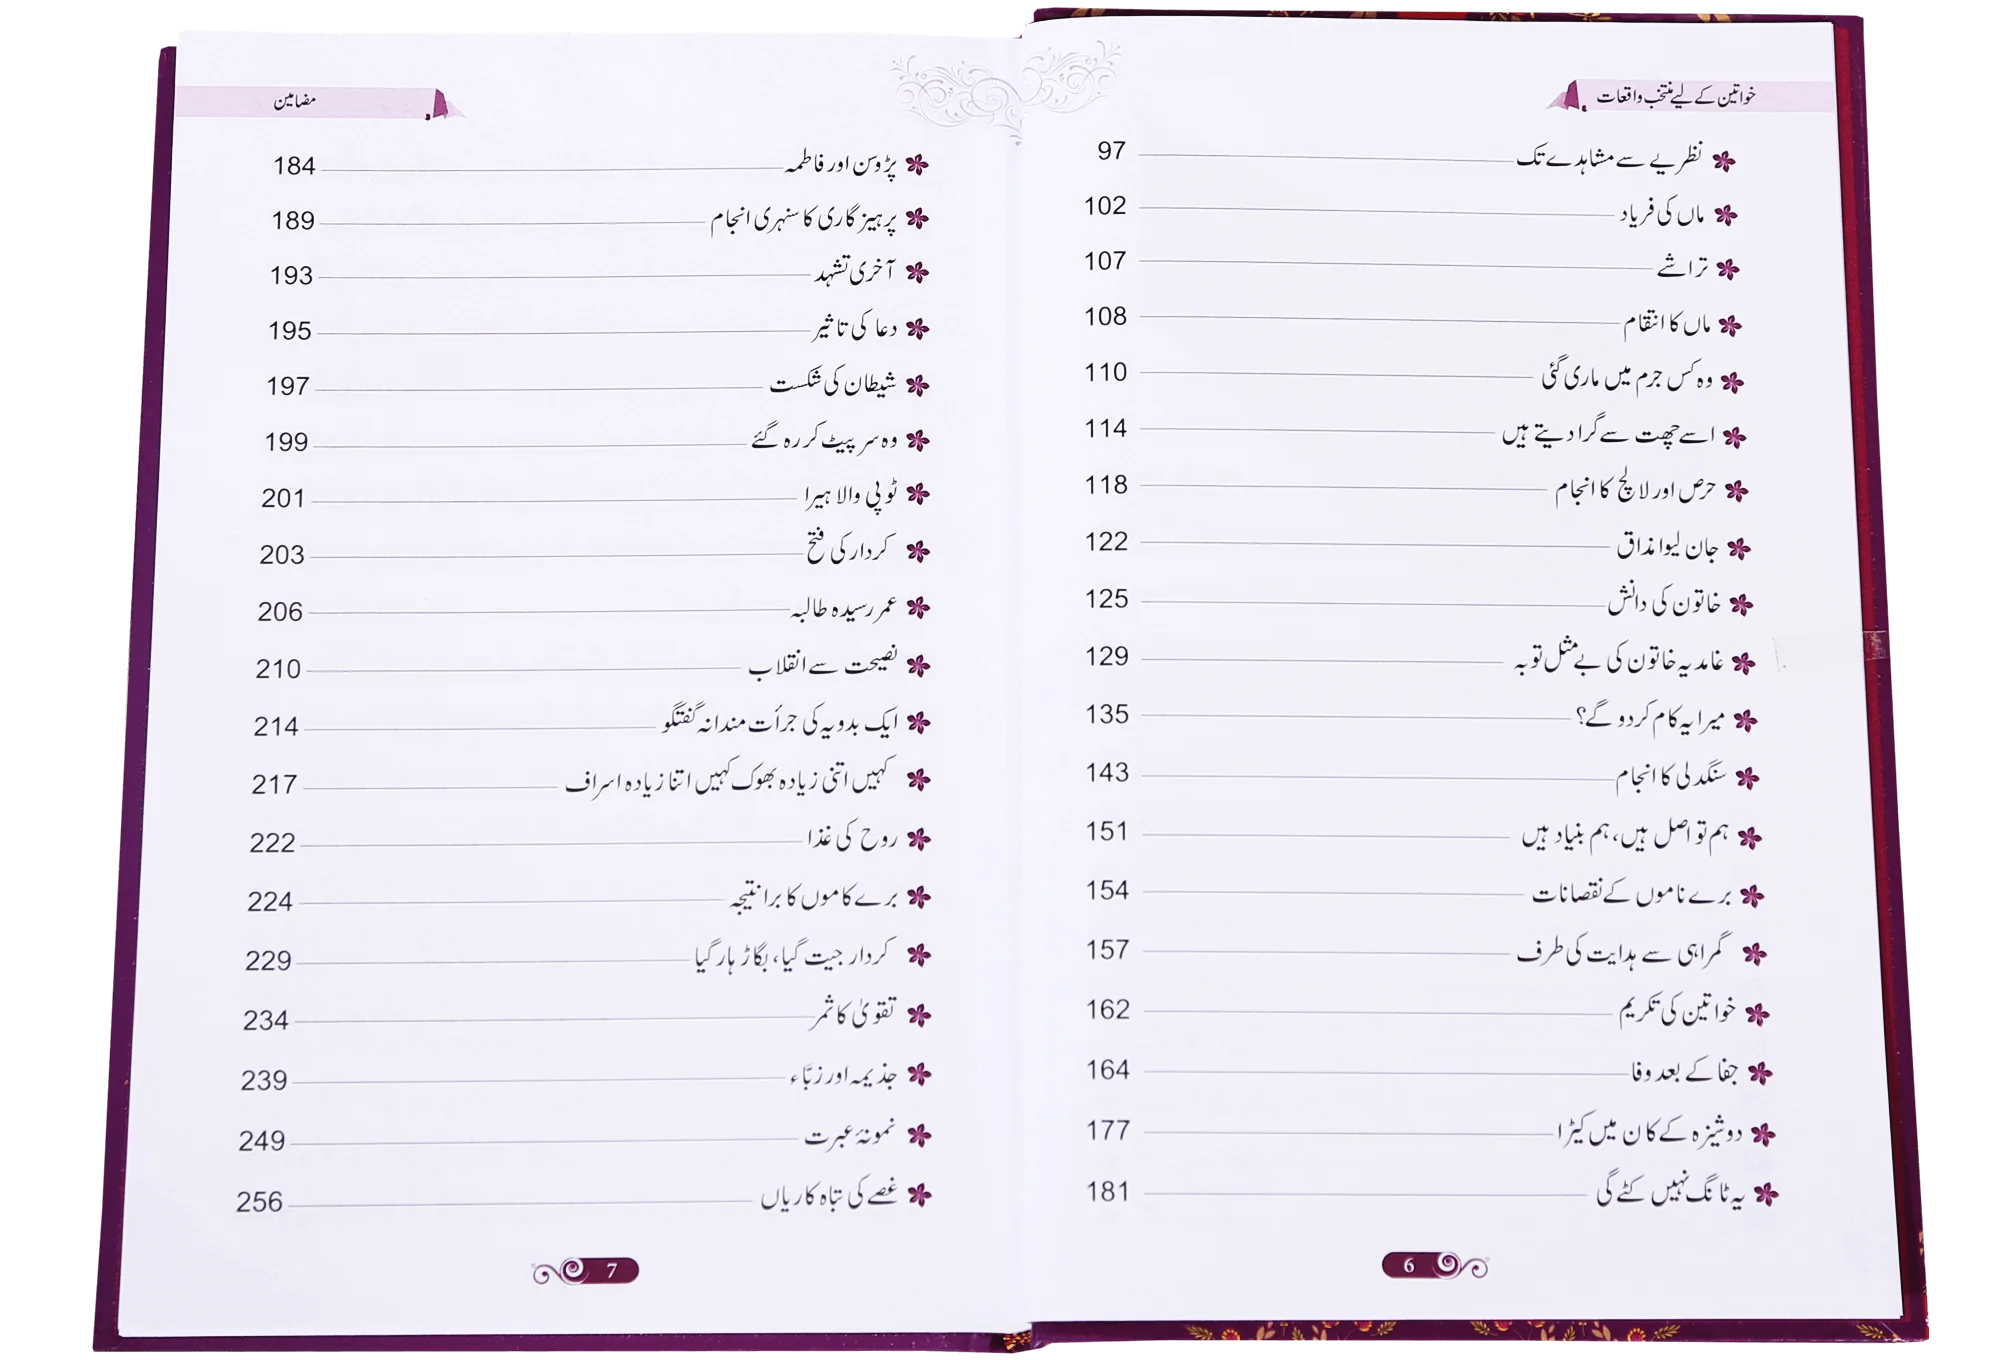 خواتین کے لیے منتخب واقعات
نظریے سے مشاہدے تک 97
ماں کی فریاد 102
تراشے 107
ماں کا انتقام 108
وہ کس جرم میں ماری گئی 110
اسے چھت سے گرا دیتے ہیں 114
حرص اور لالچ کا انجام 118
جان لیوا مذاق 122
خاتون کی دانش 125
غامدیہ خاتون کی بے مثل توبہ 129
میرا یہ کام کر دو گے؟ 135
سنگدلی کا انجام 143
ہم تو اصل ہیں، ہم بنیاد ہیں 151
برے ناموں کے نقصانات 154
گمراہی سے ہدایت کی طرف 157
خواتین کی تکریم 162
جفا کے بعد وفا 164
دوشیزہ کے کان میں کیڑا 177
یہ ٹانگ نہیں کٹے گی 181
6
مضامین
پڑوسن اور فاطمہ 184
پرہیز گاری کا سنہری انجام 189
آخری تشہد 193
دعا کی تاثیر 195
شیطان کی شکست 197
وہ سر پیٹ کر رہ گئے 199
ٹوپی والا ہیرا 201
کردار کی فتح 203
عمر رسیدہ طالبہ 206
نصیحت سے انقلاب 210
ایک بدویہ کی جرأت مندانہ گفتگو 214
کہیں اتنی زیادہ بھوک کہیں اتنا زیادہ اسراف 217
روح کی غذا 222
برے کاموں کا برا نتیجہ 224
کردار جیت گیا، بگاڑ ہار گیا 229
تقویٰ کا ثمر 234
جذیمہ اور زبّاء 239
نمونۂ عبرت 249
غصے کی تباہ کاریاں 256
7